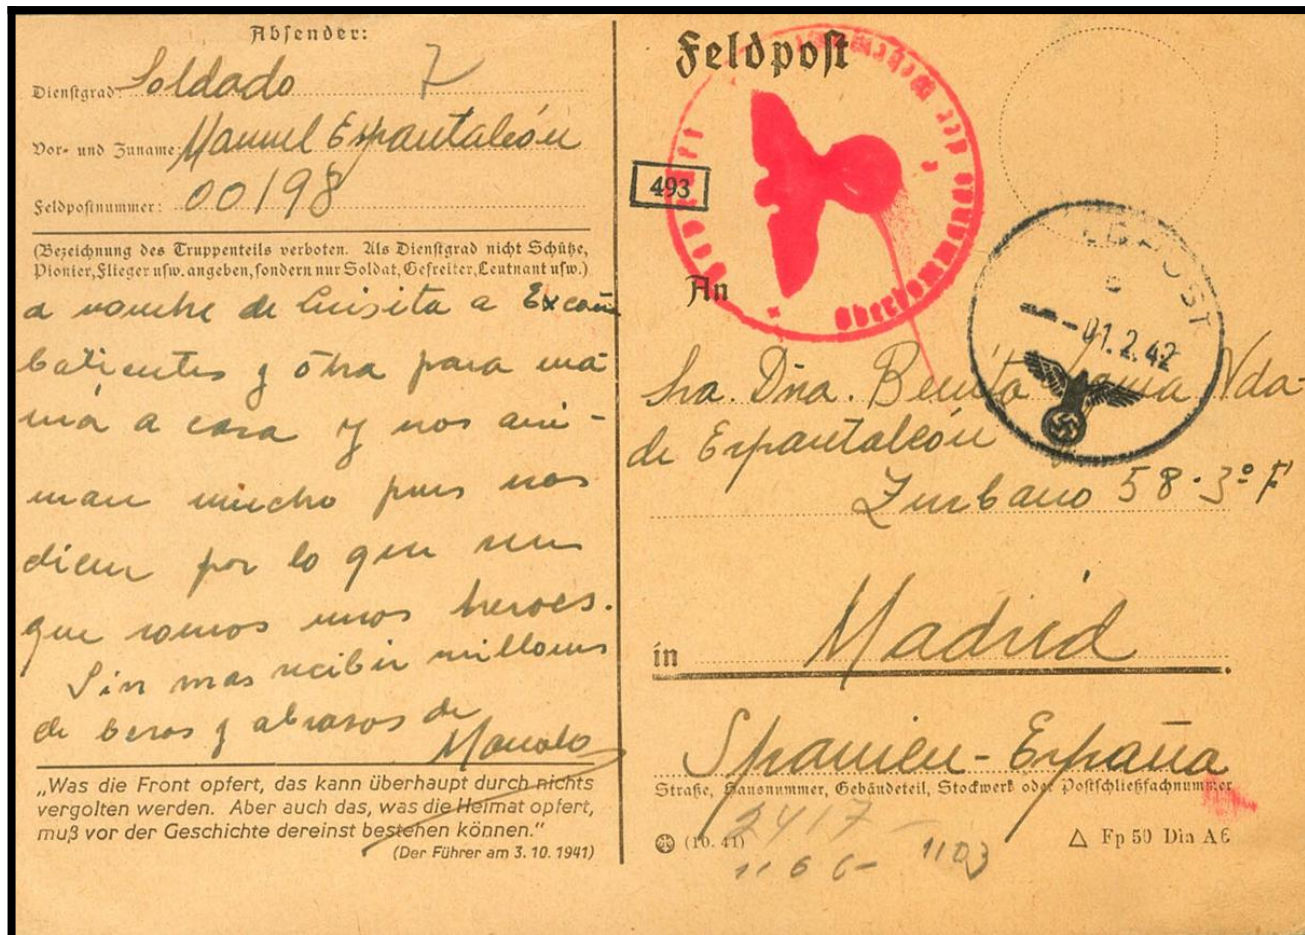 Absender:
Dienstgrad: Soldado 7
Vor- und Zuname: Manuel Espantaleón
Feldpostnummer: 00198
(Bezeichnung des Truppenteils verboten. Als Dienstgrad nicht Schütze,
Pionier, Flieger usw. angeben, sondern nur Soldat, Gefreiter, Leutnant usw.)
a nombre de Luisita a Excom
batientes y otra para ma
má a casa y nos ani-
man mucho pues nos
dicen por lo que
que somos unos heroes.
Sin mas recibir millones
de besos y abrazos de
Manolo
„Was die Front opfert, das kann überhaupt durch nichts
vergolten werden. Aber auch das, was die Heimat opfert,
muß vor der Geschichte dereinst bestehen können.“
(Der Führer am 3. 10. 1941)
Feldpost
Oberkommando der
493
An
FELDPOST
c
01.2.42
Sra. Dña. Benita Vda.
de Espantaleón
Zurbano 58-3º
in Madrid
Spanien-España
Straße, Hausnummer, Gebäudeteil, Stockwerk oder Postschließfachnummer
2417
(10. 41)
Fp 50 Din A6
1166- 1103